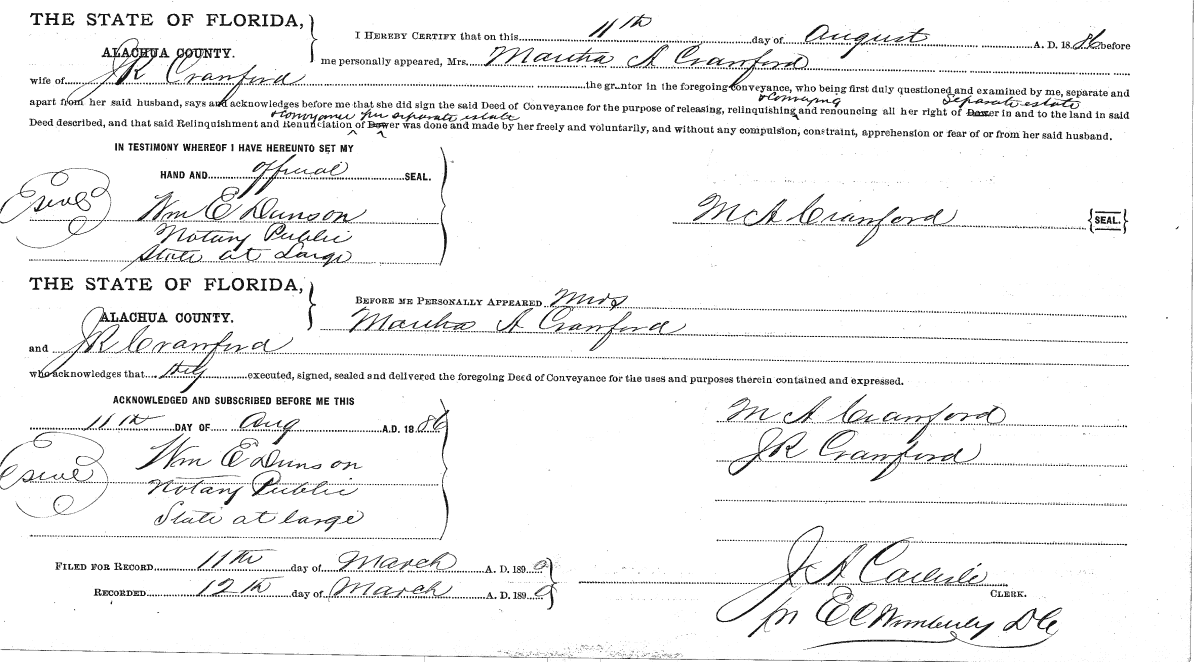 THE STATE OF FLORIDA,
ALACHUA COUNTY.
I HEREBY CERTIFY that on this 11th day of August A. D. 1886 before
me personally appeared, Mrs. Martha A Cranford
wife of J R Cranford the grantor in the foregoing conveyance, who being first duly questioned and examined by me, separate and
& conveying Separate estate
apart from her said husband, says and acknowledges before me that she did sign the said Deed of Conveyance for the purpose of releasing, relinquishing and renouncing all her right of Dower in and to the land in said
& conveyance per separate estate
Deed described, and that said Relinquishment and Renunciation of Dower was done and made by her freely and voluntarily, and without any compulsion, constraint, apprehension or fear of or from her said husband.
IN TESTIMONY WHEREOF I HAVE HEREUNTO SET MY
HAND AND official SEAL.
Wm E Dunson
Notary Public
State at Large
M A Cranford SEAL.
THE STATE OF FLORIDA,
ALACHUA COUNTY.
BEFORE ME PERSONALLY APPEARED Mrs
Martha A Cranford
and J R Cranford
who acknowledges that they executed, signed, sealed and delivered the foregoing Deed of Conveyance for the uses and purposes therein contained and expressed.
ACKNOWLEDGED AND SUBSCRIBED BEFORE ME THIS
11th DAY OF Aug A.D. 1886
Wm E Dunson
Notary Public
State at large
M A Cranford
J R Cranford
FILED FOR RECORD 11th day of March A. D. 189
RECORDED 12th day of March A. D. 189
J A Carlisle
CLERK.
per E C Wimberly D C